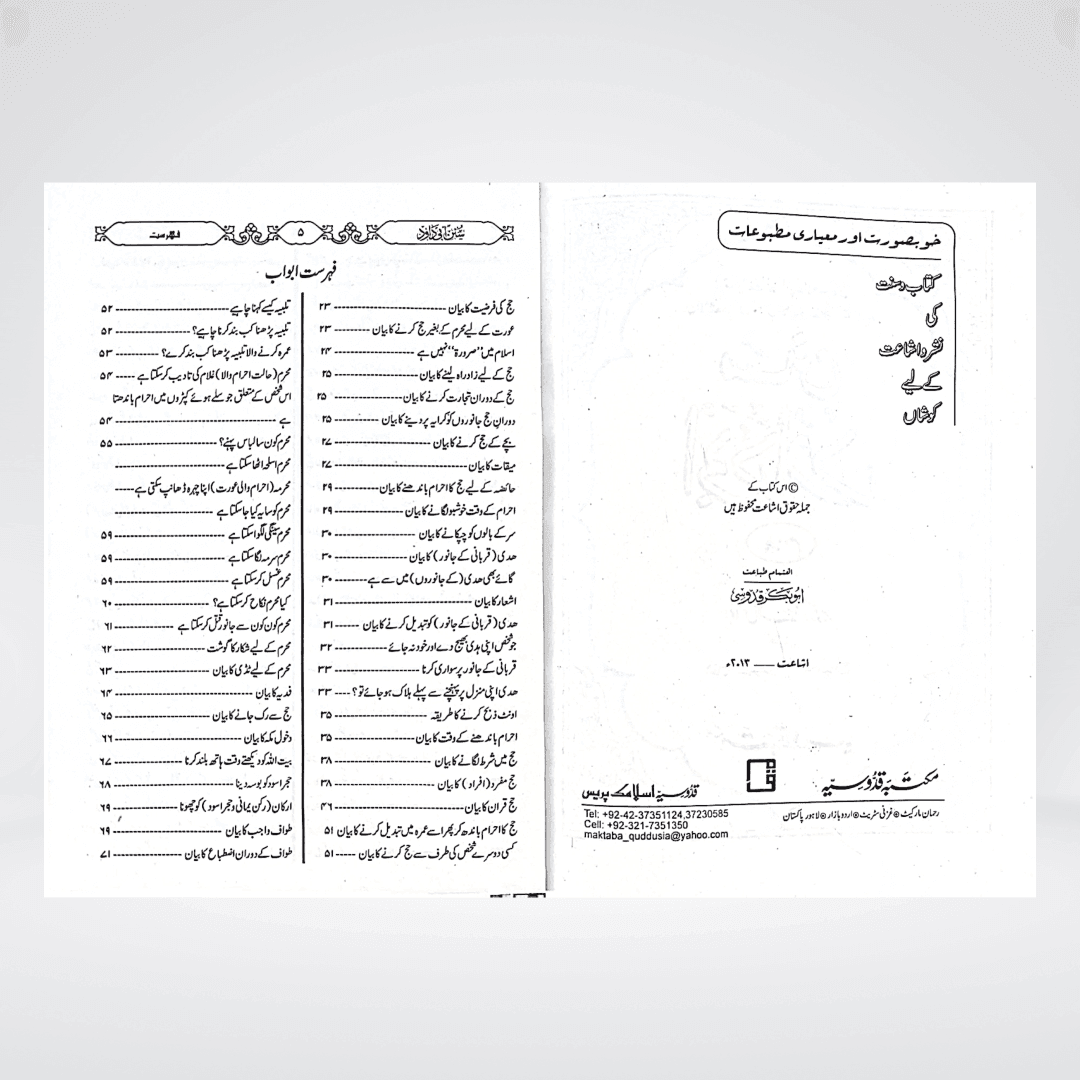 خوبصورت اور معیاری مطبوعات
کتاب وسنت
کی
نشر و اشاعت
کے لیے
کوشاں
© اس کتاب کے
جملہ حقوق اشاعت محفوظ ہیں
اہتمام طباعت
ابوبکر قدوسی
اشاعت ـــــ ۲۰۱۳ء
مکتبہ قدوسیہ
قدوسیہ اسلامک پریس
رحمان مارکیٹ ⊙ غزنی سٹریٹ ⊙ اردو بازار ⊙ لاہور پاکستان
Tel: +92-42-37351124,37230585
Cell: +92-321-7351350
maktaba_quddusia@yahoo.com
سنن ابی داود
۵
فہرست
فہرست ابواب
حج کی فرضیت کا بیان ---------- ۲۳
عورت کے لیے محرم کے بغیر حج کرنے کا بیان ---------- ۲۳
اسلام میں ”صرورۃ“ نہیں ہے ---------- ۲۴
حج کے لیے زادراہ لینے کا بیان ---------- ۲۵
حج کے دوران تجارت کرنے کا بیان ---------- ۲۵
دوران حج جانوروں کو کرایہ پر دینے کا بیان ---------- ۲۵
بچے کے حج کرنے کا بیان ---------- ۲۷
میقات کا بیان ---------- ۲۷
حائضہ کے لیے حج کا احرام باندھنے کا بیان ---------- ۲۹
احرام کے وقت خوشبو لگانے کا بیان ---------- ۲۹
سر کے بالوں کو چپکانے کا بیان ---------- ۳۰
ھدی (قربانی کے جانور) کا بیان ---------- ۳۰
گائے بھی ھدی (کے جانوروں) میں سے ہے ---------- ۳۰
اشعار کا بیان ---------- ۳۱
ھدی (قربانی کے جانور) کو تبدیل کرنے کا بیان ------ ۳۱
جو شخص اپنی ہدی بھیج دے اور خود نہ جائے ---------- ۳۲
قربانی کے جانور پر سواری کرنا ---------- ۳۳
ھدی اپنی منزل پر پہنچنے سے پہلے ہلاک ہو جائے تو؟ ---- ۳۳
اونٹ ذبح کرنے کا طریقہ ---------- ۳۵
احرام باندھنے کے وقت کا بیان ---------- ۳۵
حج میں شرط لگانے کا بیان ---------- ۳۸
حج مفرد (افراد) کا بیان ---------- ۳۸
حج قران کا بیان ---------- ۴۶
حج کا احرام باندھ کر پھر اسے عمرہ میں تبدیل کرنے کا بیان ۵۱
کسی دوسرے شخص کی طرف سے حج کرنے کا بیان ----- ۵۱
تلبیہ کیسے کہنا چاہیے ---------- ۵۲
تلبیہ پڑھنا کب بند کرنا چاہیے؟ ---------- ۵۲
عمرہ کرنے والا تلبیہ پڑھنا کب بند کرے؟ ---------- ۵۳
محرم (حالت احرام والا) غلام کی تادیب کر سکتا ہے ----- ۵۴
اس شخص کے متعلق جو سلے ہوئے کپڑوں میں احرام باندھتا
ہے ---------- ۵۴
محرم کون سا لباس پہنے؟ ---------- ۵۵
محرم اسلحہ اٹھا سکتا ہے ----------
محرمہ (احرام والی عورت) اپنا چہرہ ڈھانپ سکتی ہے -----
محرم کو سایہ کیا جا سکتا ہے ----------
محرم سینگی لگوا سکتا ہے ---------- ۵۹
محرم سرمہ لگا سکتا ہے ---------- ۵۹
محرم غسل کر سکتا ہے ---------- ۵۹
کیا محرم نکاح کر سکتا ہے؟ ---------- ۶۰
محرم کون کون سے جانور قتل کر سکتا ہے ---------- ۶۱
محرم کے لیے شکار کا گوشت ---------- ۶۲
محرم کے لیے ٹڈی کا بیان ---------- ۶۳
فدیہ کا بیان ---------- ۶۴
حج سے رک جانے کا بیان ---------- ۶۵
دخول مکہ کا بیان ---------- ۶۶
بیت اللہ کو دیکھتے وقت ہاتھ بلند کرنا ---------- ۶۷
حجر اسود کو بوسہ دینا ---------- ۶۸
ارکان (رکن یمانی و حجر اسود) کو چھونا ---------- ۶۹
طواف واجب کا بیان ---------- ۶۹
طواف کے دوران اضطباع کا بیان ---------- ۷۱